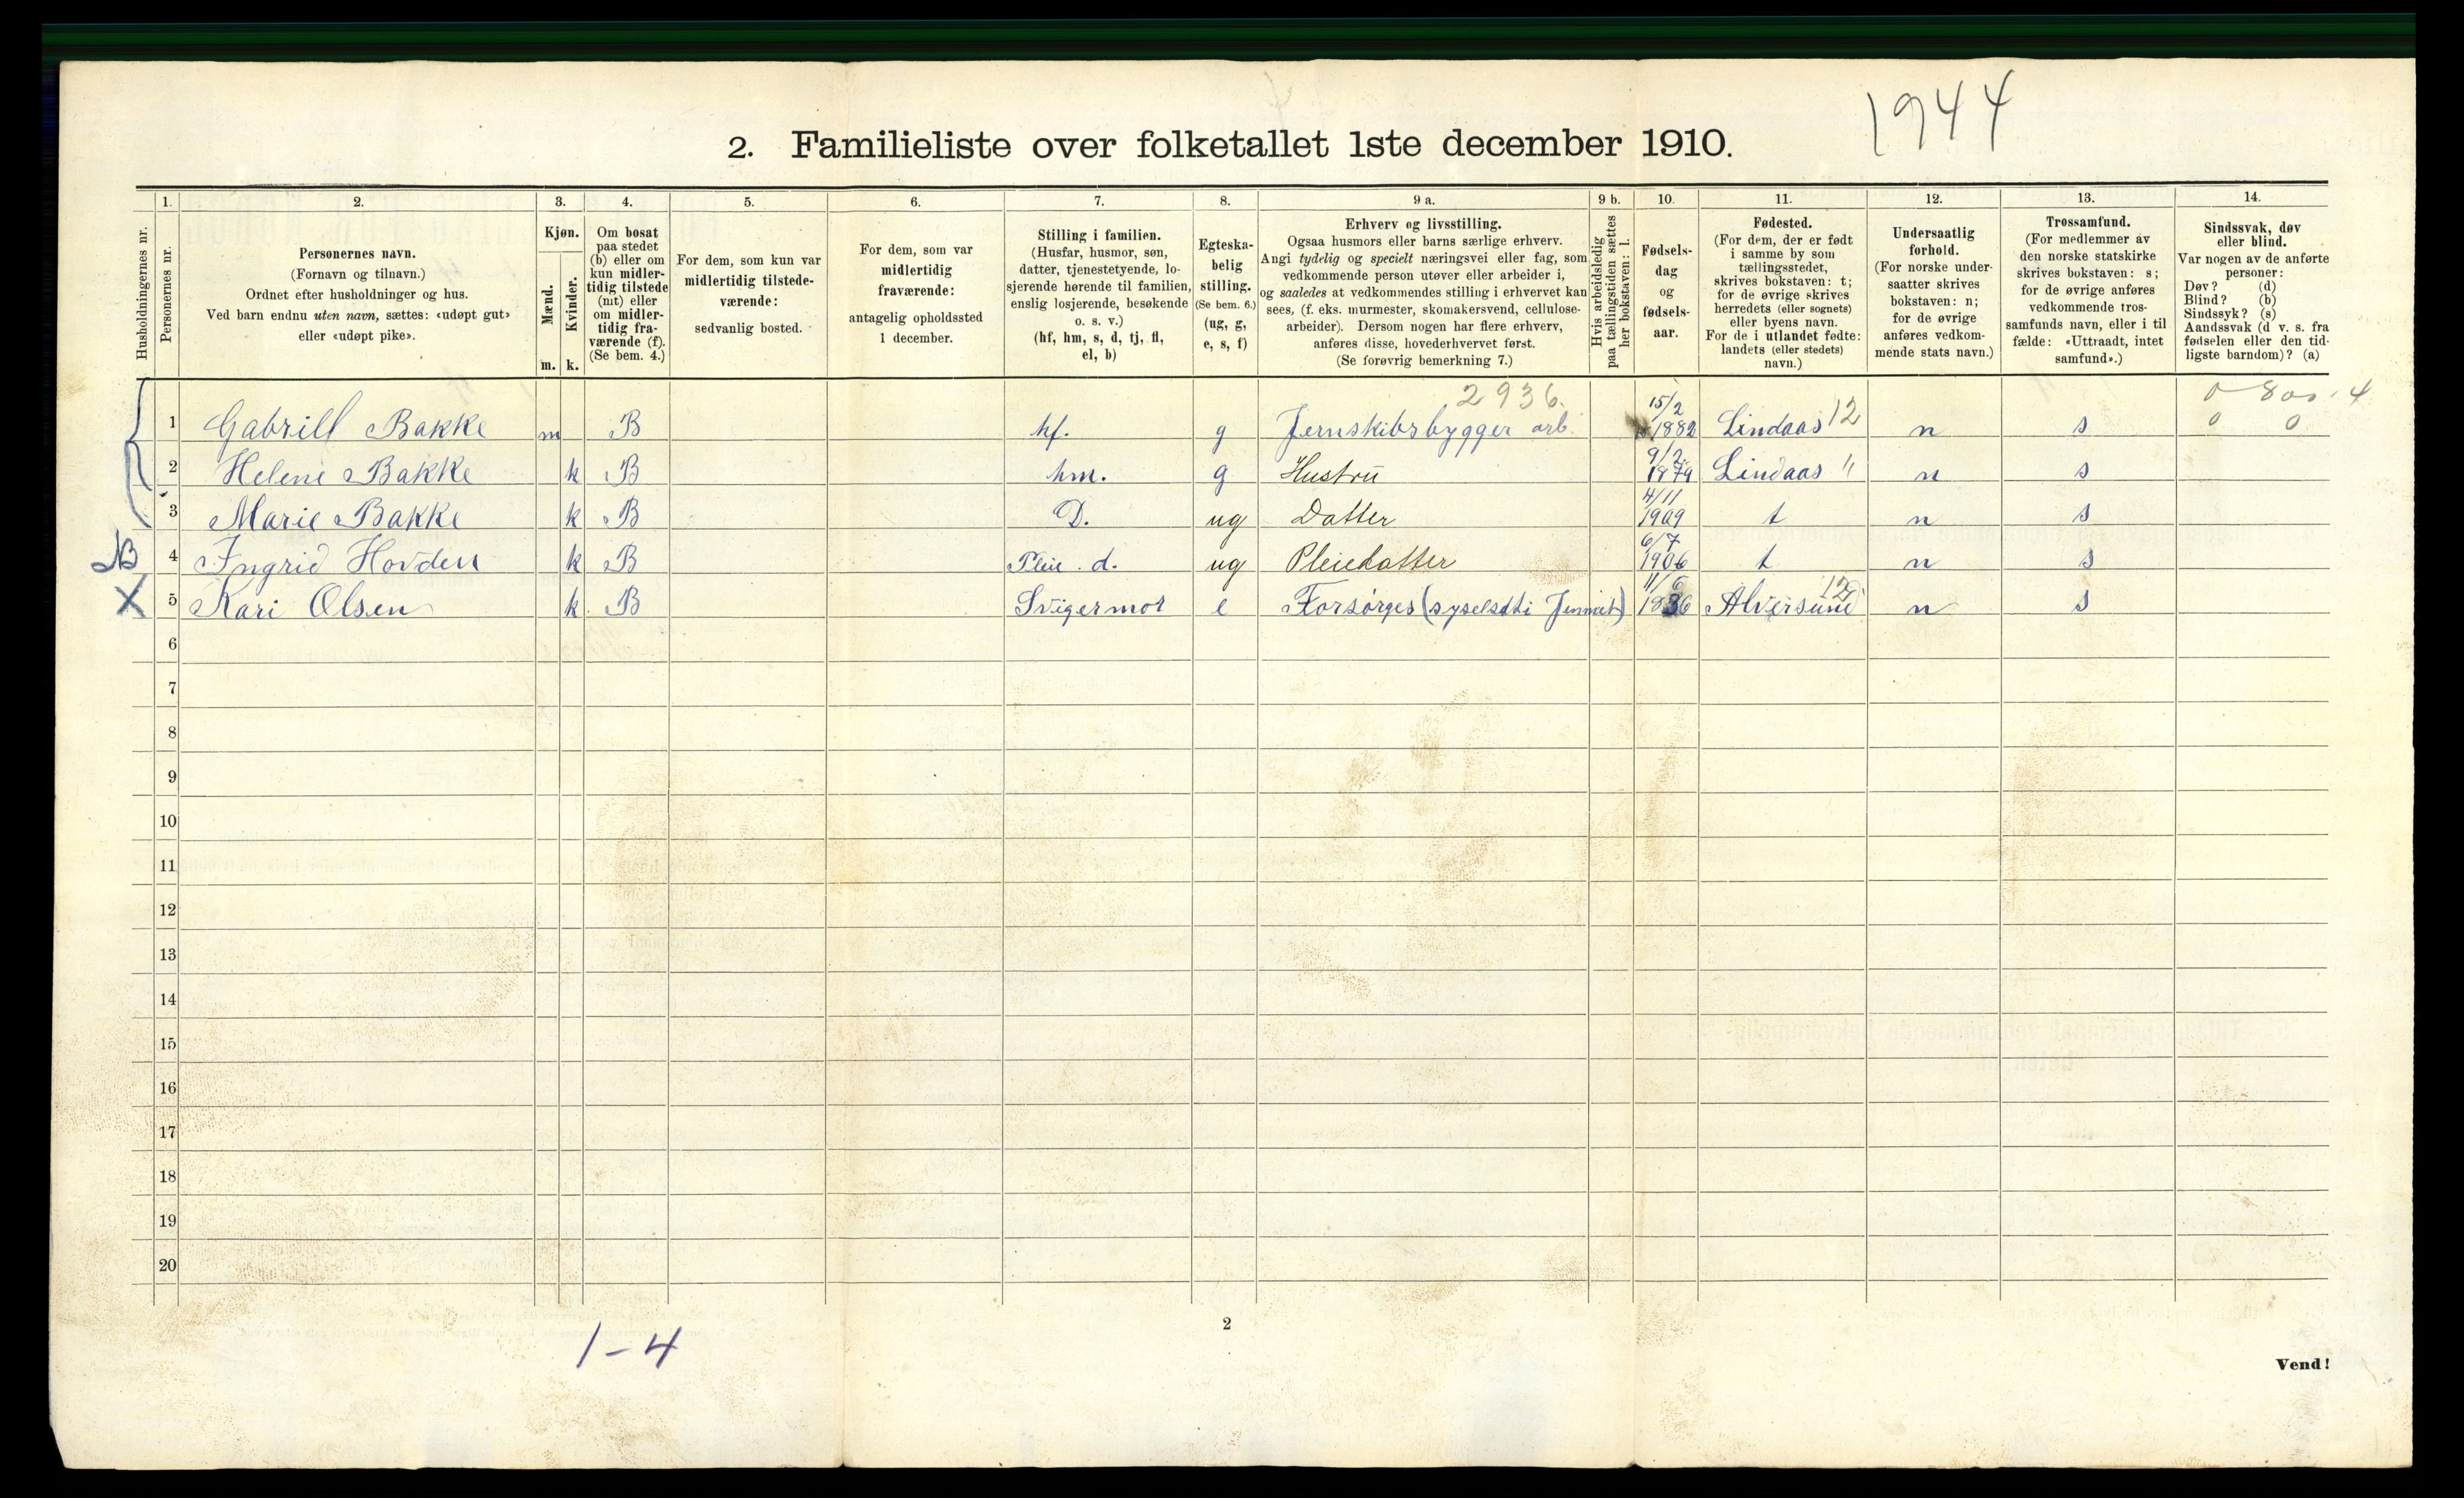 1944
2. Familieliste over folketallet 1ste december 1910.
Husholdningernes nr.
1.
Personernes nr.
2.
Personernes navn.
(Fornavn og tilnavn.)
Ordnet efter husholdninger og hus.
Ved barn endnu uten navn, sættes: «udøpt gut»
eller «udøpt pike».
3.
Kjøn.
Mænd.
Kvinder.
m. k.
4.
Om bosat
paa stedet
(b) eller om
kun midler-
tidig tilstede
(mt) eller
om midler-
tidig fra-
værende (f).
(Se bem. 4.)
5.
For dem, som kun var
midlertidig tilstede-
værende:
sedvanlig bosted.
6.
For dem, som var
midlertidig
fraværende:
antagelig opholdssted
1 december.
7.
Stilling i familien.
(Husfar, husmor, søn,
datter, tjenestetyende, lo-
sjerende hørende til familien,
enslig losjerende, besøkende
o. s. v.)
(hf, hm, s, d, tj, fl,
el, b)
8.
Egteska-
belig
stilling.
(Se bem. 6.)
(ug, g,
e, s, f)
9 a.
Erhverv og livsstilling.
Ogsaa husmors eller barns særlige erhverv.
Angi tydelig og specielt næringsvei eller fag, som
vedkommende person utøver eller arbeider i,
og saaledes at vedkommendes stilling i erhvervet kan
sees, (f. eks. murmester, skomakersvend, cellulose-
arbeider). Dersom nogen har flere erhverv,
anføres disse, hovederhvervet først.
(Se forøvrig bemerkning 7.)
9 b.
Hvis arbeidsledig
paa tællingstiden sættes
her bokstaven: l.
10.
Fødsels-
dag
og
fødsels-
aar.
11.
Fødested.
(For dem, der er født
i samme by som
tællingsstedet,
skrives bokstaven: t;
for de øvrige skrives
herredets (eller sognets)
eller byens navn.
For de i utlandet fødte:
landets (eller stedets)
navn.)
12.
Undersaatlig
forhold.
(For norske under-
saatter skrives
bokstaven: n;
for de øvrige
anføres vedkom-
mende stats navn.)
13.
Trossamfund.
(For medlemmer av
den norske statskirke
skrives bokstaven: s;
for de øvrige anføres
vedkommende tros-
samfunds navn, eller i til
fælde: «Uttraadt, intet
samfund».)
14.
Sindssvak, døv
eller blind.
Var nogen av de anførte
personer:
Døv? (d)
Blind? (b)
Sindssyk? (s)
Aandssvak (d v. s. fra
fødselen eller den tid-
ligste barndom)? (a)
2936.
1 Gabriell Bakke m B hf. g Jernskibsbygger arb. 15/2 1882 Lindaas 12 n s 0 0
2 Helene Bakke k B hm. g Hustru 9/2 1879 Lindaas " n s
3 Marie Bakke k B D. ug Datter 4/11 1909 t n s
4 Ingrid Hovden k B Pleie. d. ug Pleiedatter 6/7 1906 t n s
X 5 Kari Olsen k. B Svigermor e Forsørges 11/6 1836 Alversund 12 n s
6
7
8
9
10
11
12
13
14
15
16
17
18
19
20
1-4
2
Vend!